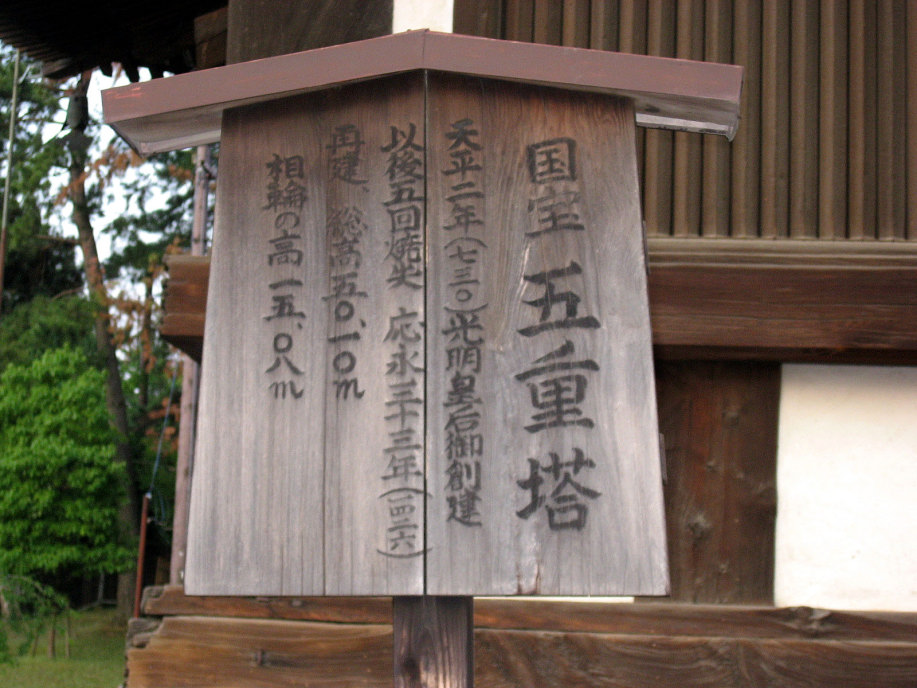 国宝 五重塔
天平二年(七三〇)光明皇后御創建
以後五回焼失 応永三十三年(一四二六)
再建、総高五〇、一〇m
相輪の高一五、〇八m